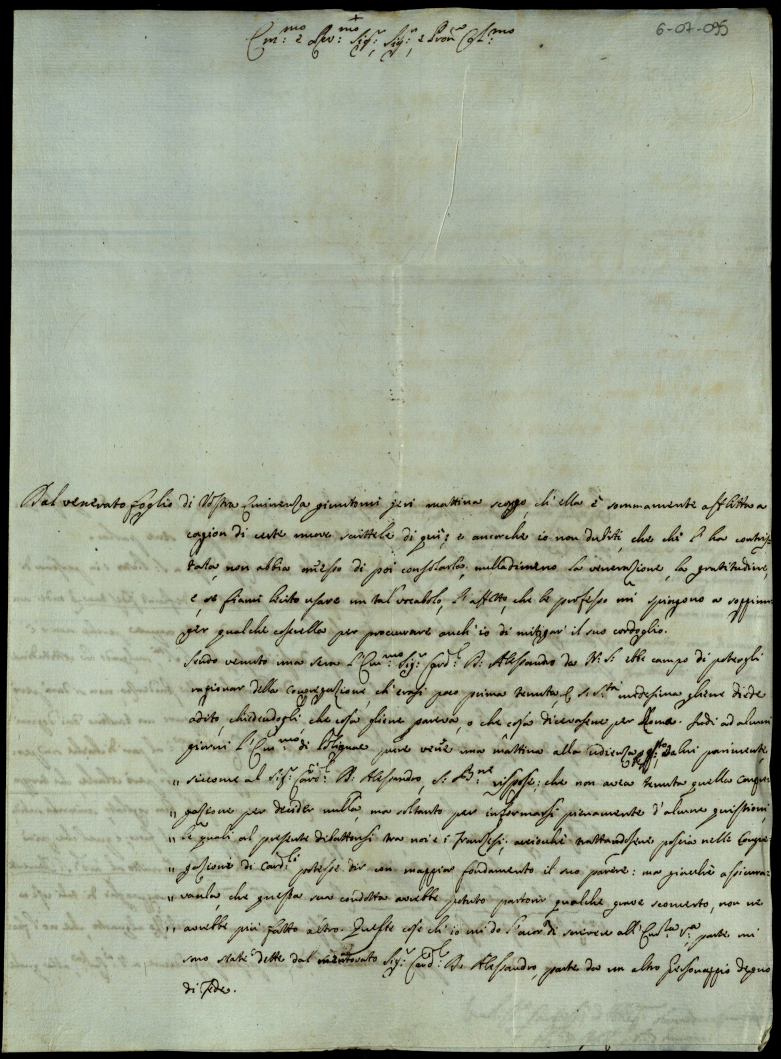 6-07-095
Em:mo e Rev:mo Sig:r Sig:r e Pron Col:mo
Dal venerato foglio di Vostra Eminenza giuntomi jeri mattina scorgo, ch'ella è sommamente afflitta a
cagion di certe nuove scrittele di quì; e ancorche io non dubiti, che chi l'ha contris
tata, non abbia messo di poi consolarla, nulladimeno la venerazione, la gratitudine,
e, se siami lecito usare un tal vocabolo, l'affetto, che le professo mi spingono a
per qualche per procurare anch'io di mitigar il suo cordoglio.
Sendo venuto una sera l'Em:mo Sig:r Card:l D. Alessandro da N. S. ebbe campo di potergli
ragionar della Congregazione, ch'erasi poco prima tenuta, e S. S.tà medesima gliene diede
adito, chiedendogli, che cosa gliene pareva, o che cosa dicevasene per Roma. Indi ad alcuni
giorni l'Em:mo di Polignac pure venne una mattina alla udienza, e da lui parimente,
" siccome al Sig:r Card:l D. Alessandro, S. B.ne rispose: che non avea tenuta quella Congre
" gazione per decider nulla, ma soltanto per informarsi pienamente d'alcune quistioni,
" le quali al presente dibattonsi tra noi e i Francesi, acciochè trattandosene poscia nelle Congre
" gazione di Card:li potesse dir con maggior fondamento il suo parere: ma giachè assicura
" vanla, che questa sua condotta avrebbe potuto partorir qualche grave sconcerto, non ne
" avrebbe più fatto altro. Queste cose ch'io mi do l'onor di scrivere all'Em.za V.a parte mi
sono state dette dal mentovato Sig:r Card:l D. Alessandro, parte da un altro Personaggio degno
di fede.